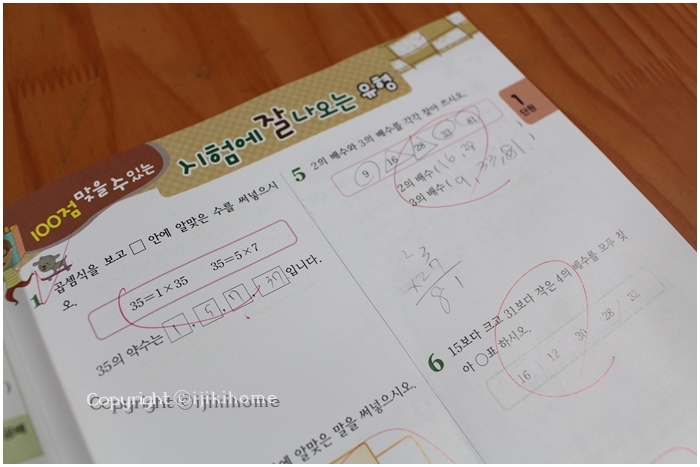 100점 맞을 수 있는
시험에 잘 나오는 유형
1
단원
1 곱셈식을 보고 □ 안에 알맞은 수를 써넣으시
오.
35=1×35 35=5×7
35의 약수는 1, 5, 7, 35입니다.
5 2의 배수와 3의 배수를 각각 찾아 쓰시오.
9 16 28 33 81
2의 배수(16, 28
3의 배수(9, 33, 81,)
27
81
6 15보다 크고 31보다 작은 4의 배수를 모두 찾
아 ○표 하시오.
16 12 30 28 32
알맞은 말을 써넣으시오.
Copyright ⓒijikihome